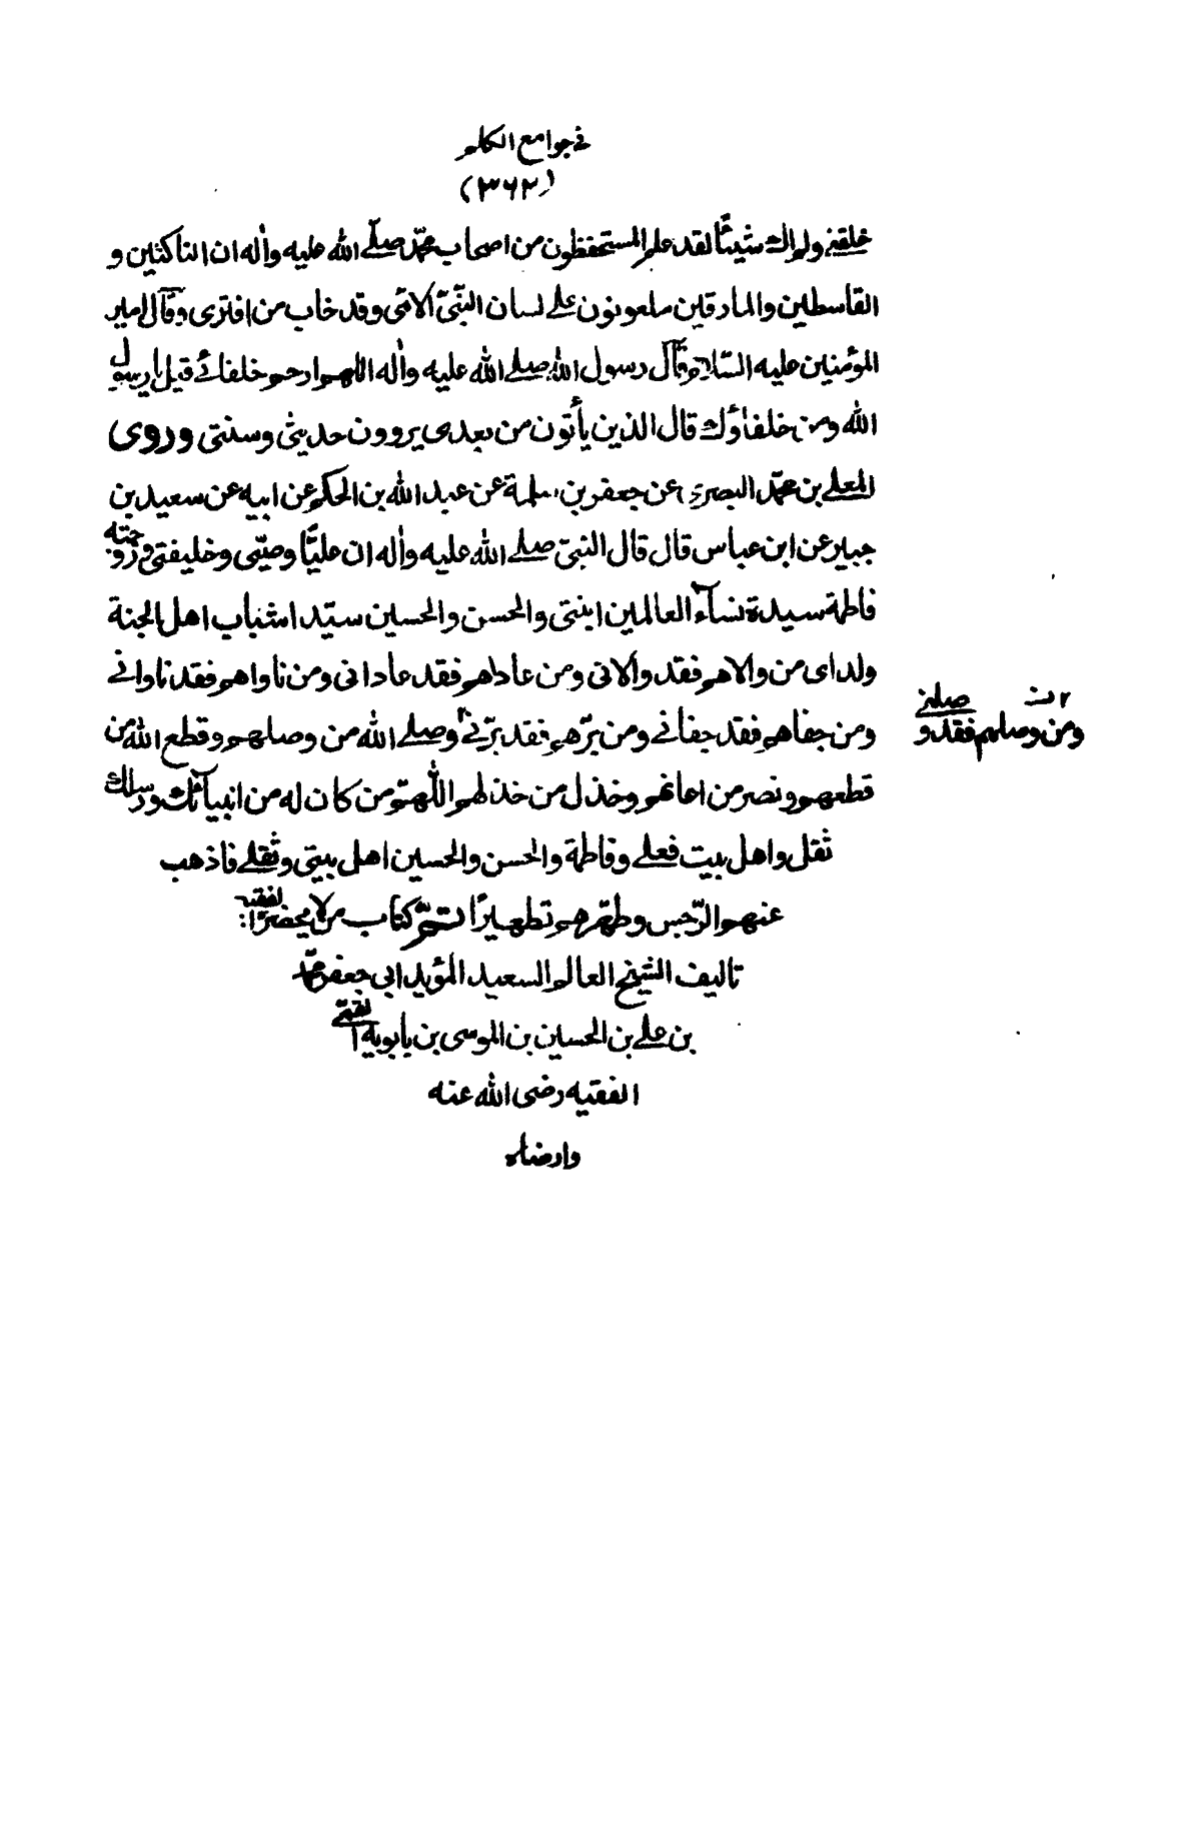 في جوامع الكلم
(٣٦٢)
خلقني ولم اك شيئًا لقد علم المستحفظون من اصحاب محمّد صلّى الله عليه واٰله ان الناكثين و
القاسطين والمارقين ملعونون على لسان النّبيّ الامّي وقد خاب من افترى وقال امير
المؤمنين عليه السّلام قال رسول الله صلى الله عليه واٰله اللهم ارحم خلفائي قيل يا رسول
الله ومن خلفاؤك قال الذين يأتون من بعدى يروون حديثي وسنتي وروى
المعلى بن محمّد البصرى عن جعفر بن سلمة عن عبد الله بن الحكم عن ابيه عن سعيد بن
جبير عن ابن عباس قال قال النبيّ صلى الله عليه واٰله ان عليًّا وصيّي وخليفتي وزوجته
فاطمة سيدة نسآء العالمين ابنتي والحسن والحسين سيّدا شباب اهل الجنة
ولداى من والاهم فقد والانى ومن عاداهم فقد عادانى ومن ناواهم فقد ناوانى
ومن جفاهم فقد جفانى ومن برّهم فقد برّنى٢ وصلى الله من وصلهم وقطع الله من
٢ ومن وصلهم فقد وصلنى
قطعهم ونصر من اعانهم وخذل من خذلهم اللّهمّ من كان له من انبيآئك ورسلك
ثقل واهل بيت فعلى وفاطمة والحسن والحسين اهل بيتي وثقلى فاذهب
عنهم الرّجس وطهّرهم تطهيرًا تمّ كتاب من لا يحضره الفقيه
تاليف الشيخ العالم السعيد المؤيد ابي جعفر محمّد
بن على بن الحسين بن الموسى بن بابويه القمّى
الفقيه رضى الله عنه
وارضاه